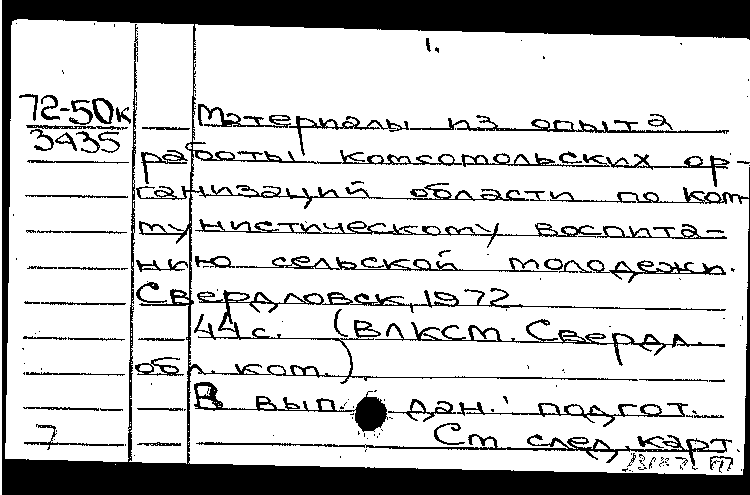 1.
72-50к
3435
Материалы из опыта
работы комсомольских ор-
ганизаций области по ком-
мунистическому воспита-
нию сельской молодежи.
Свердловск, 1972.
44 с. (ВЛКСМ. Свердл.
обл. ком.)
В вып. дан.: подгот.
7 См след. карт.